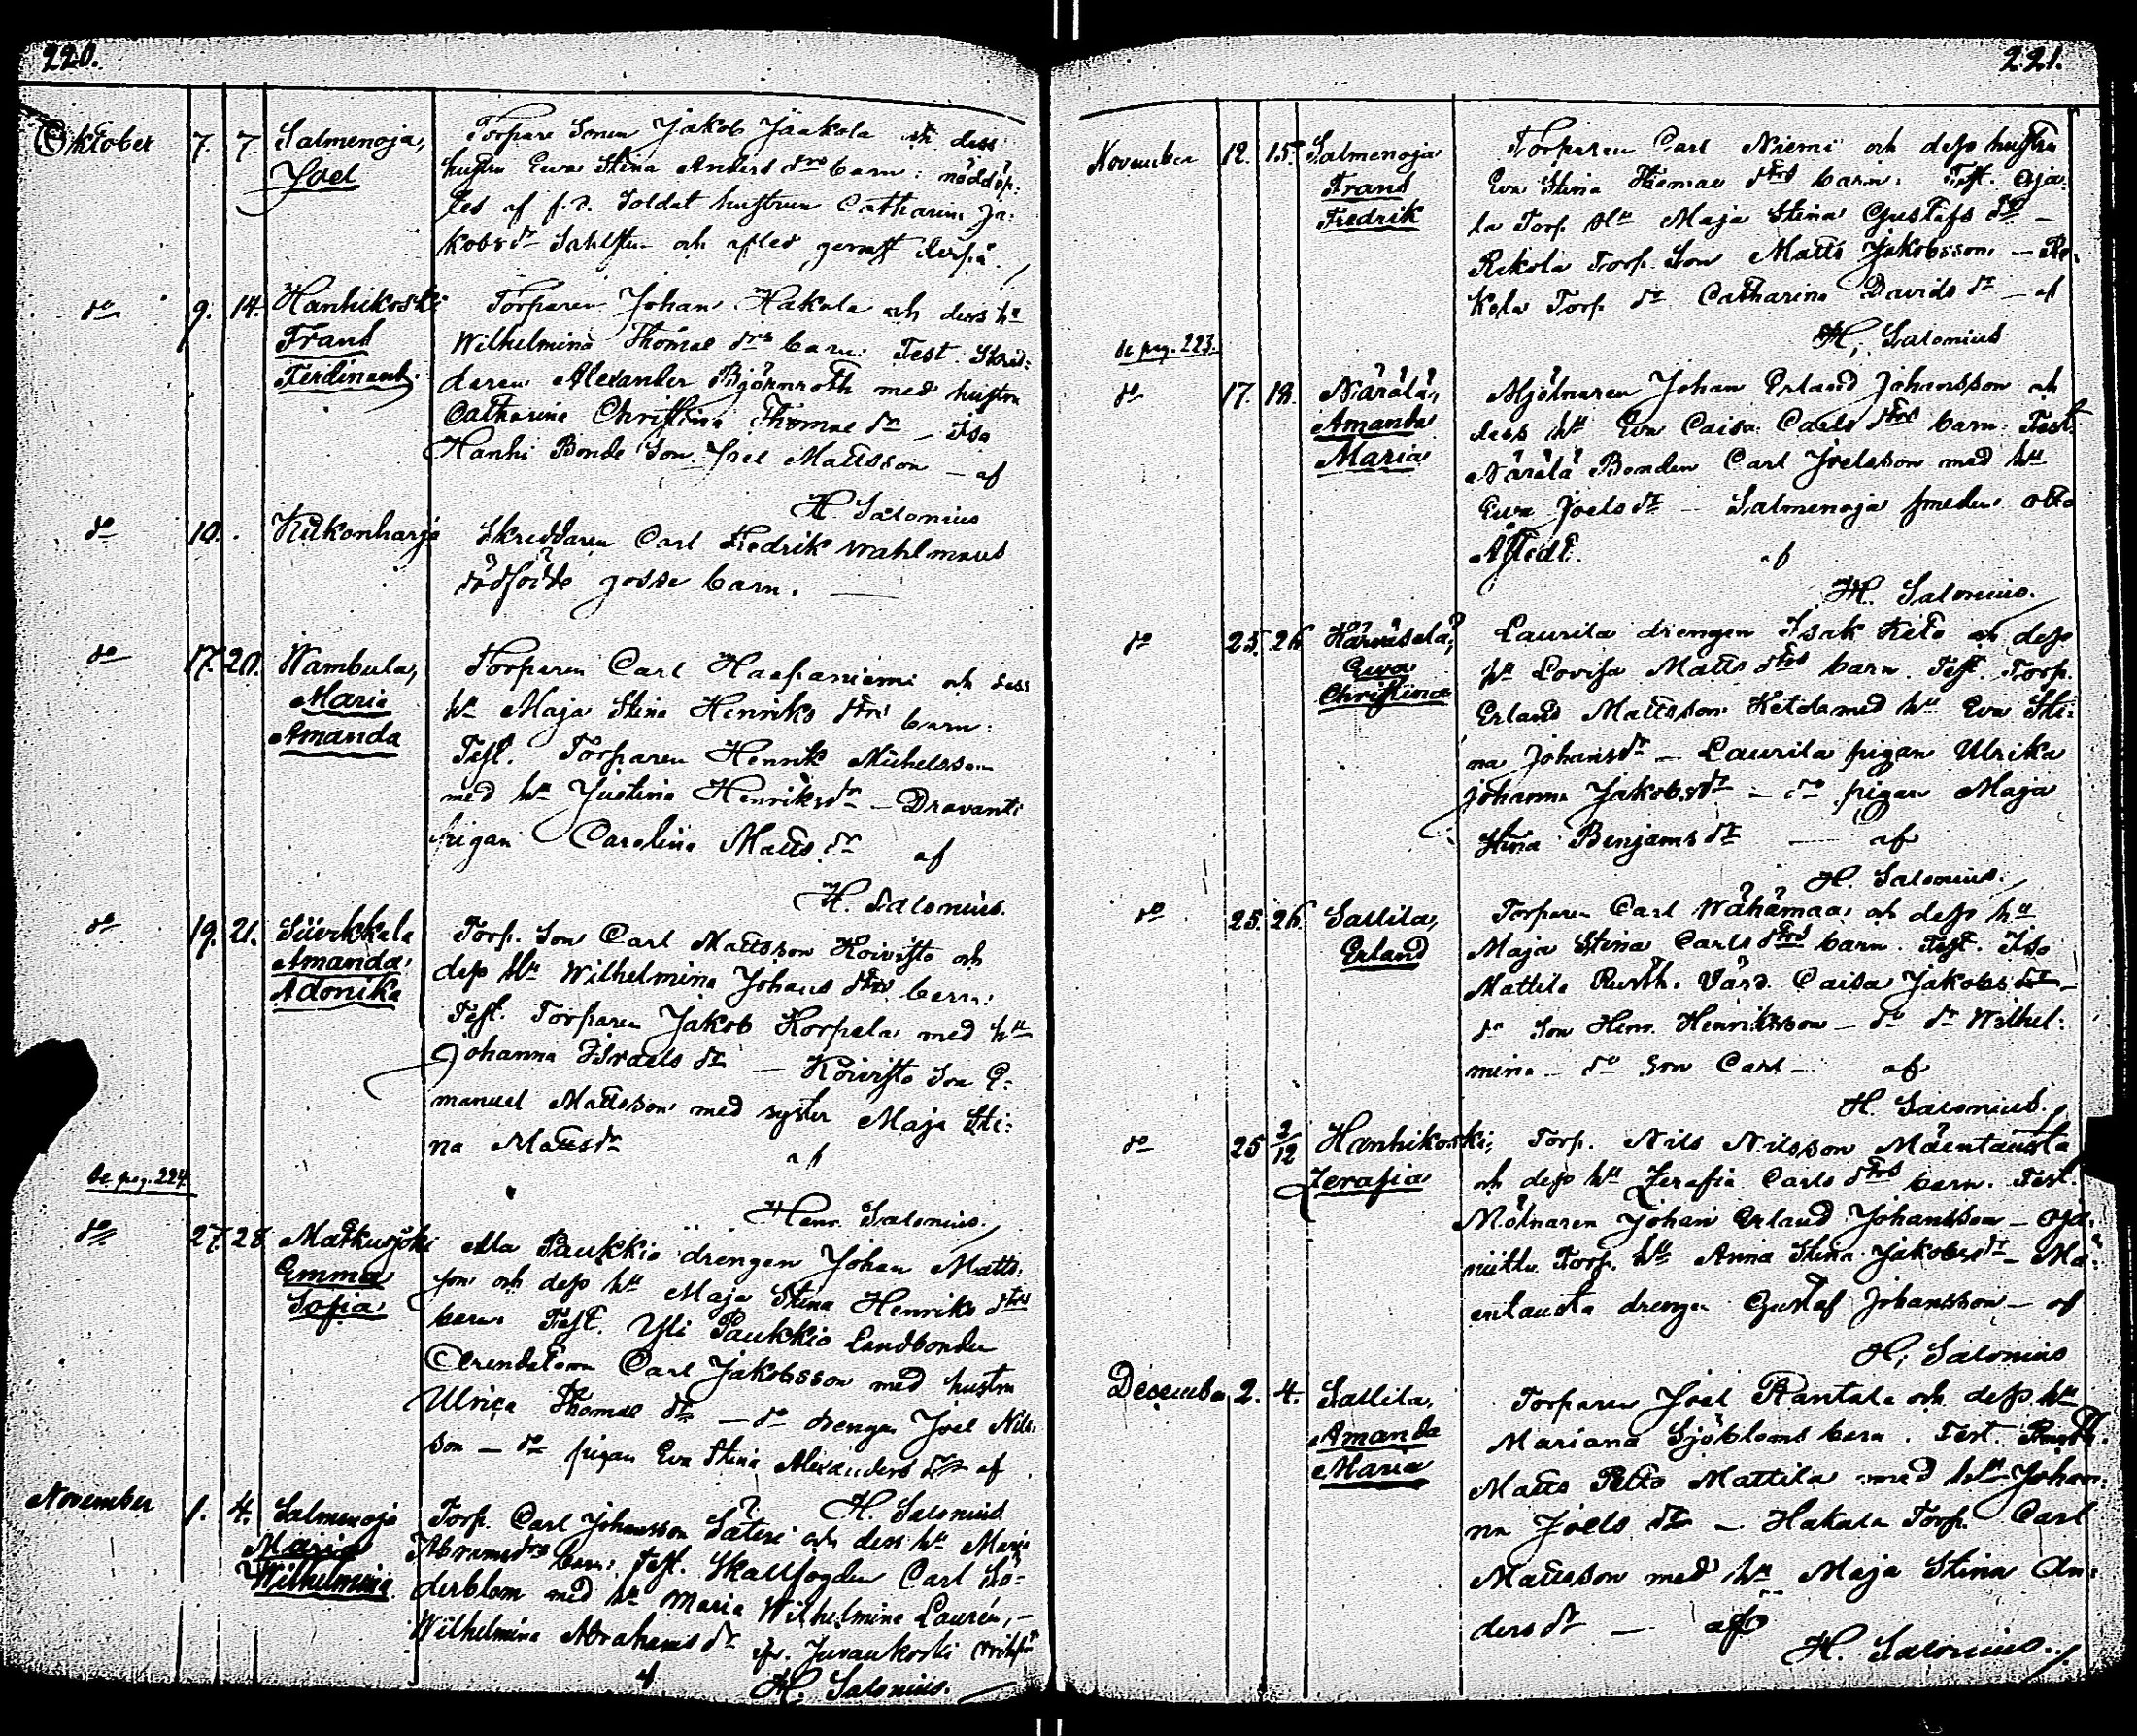 220.
Oktober 7. 7 Salmenoja, Torpare Sonen Jakob Jaakola och dess
Joel hustru Eva Stina Anders drs barn: nöddöp:
tes af f.d. Soldat hustrun Catharina Ja:
kobsdr Sahlsten och afled genast derpå.
do 9. 14. Hanhikoski Torparen Johan Hakala och dess hu
Frans Wilhelmina Thomae drs barn: Test. Skred:
Ferdinand. daren Alexander Björnroth med hustru
Catharina Christina Thomae dr — Iso
Hanhi Bonde Son Joel Mattsson — af
H. Salonius
do 10. Kukonharja Skreddaren Carl Fredrik Wahlmans
dödfödde gosse barn. —
do 17. 20. Wambula, Torparen Carl Haapaniemi och dess
Maria hu Maja Stina Henriks drs barn:
Amanda Test. Torparen Henrik Michelsson
med hu Justina Henriksdr — Dravanti
pigan Carolina Matts dr af
H. Salonius.
do 19. 21. Süerkkala Torp. Son Carl Mattsson Koivisto och
Amanda dess Hu Wilhelmina Johans drs barn:
Adonika Test. Torparen Jakob Korpela med hu
Johanna Israels dr — Koivisto Son E:
manuel Mattsson med syster Maja Sti:
na Mattsdr af
Se pag. 224.
Henr. Salonius.
do 27. 28 Matkusjoki Ala Paukkio drengen Johan Matts:
Emma son och dess hu Maja Stina Henriks drs
Sofia barn. Test. Yli Paukkio Landbonden
Arendatorn Carl Jakobsson med hustru
Ulrica Thomae dr — do drengen Joel Nils:
son — do pigan Eva Stina Alexanders dr af
H. Salonius.
November 1. 4. Salmenoja Torp. Carl Johansson Säteri och dess hu Maria
Maria Abramsdrs barn: Test. Skallfogden Carl Sö:
Wilhelmina derblom med hu Maria Wilhelmina Laurén, —
Wilhelmina Abrahams dr Juvankoski
af H. Salonius.
221.
November 12. 15. Salmenoja Torparen Carl Niemi och dess hustru
Frans Eva Stina Thomae drs barn: Test. Oja:
Fredrik la Torp. Hu Maja Stina Gustafs dr —
Rekola Torp. Son Matts Jakobsson — Re:
kola Torp. dr Catharina Davids dr — af
H. Salonius
Se pag. 223.
do 17. 18. Närälä, Mjölnaren Johan Erland Johansson och
Amanda dess hu Eva Caisa Carls drs barn: Test.
Maria Närälä Bonden Carl Joelsson med hu
Eva Joelsdr — Salmenoja smeden Otto
af
H. Salonius.
do 25. 26 Härväsala, Laurila drengen Isak Keto och dess
Eva hu Lovisa Matts drs barn. Test. Torp.
Christina Erland Mattsson Ketola med hu Eva Sti:
na Johansdr — Laurila pigan Ulrika
Johanna Jakobsdr — do pigan Maja
Stina Benjamsdr — af
H. Salonius.
do 25. 26. Sallila, Torparen Carl Wähämaa och dess hu
Erland Maja Stina Carls drs barn. Test. Iso
Mattila Rusth. Värd. Caisa Jakobs dr —
do Son Henr. Henriksson — do dr Wilhel:
mina — do Son Carl — af
H. Salonius.
do 25 2/12 Hanhikoski, Torp. Nils Nilsson Mäentausta
Zerafia och dess hu Zerafia Carls drs barn. Test.
Mölnaren Johan Erland Johansson — Oja:
niittu Torp. hu Anna Stina Jakobsdr — Mä:
entausta drengen Gustaf Johansson — af
H. Salonius
December 2. 4. Sallila, Torparen Joel Rantala och dess hu
Amanda Mariana Sjöbloms barn. Test. Rusth.
Maria Matts Petto Mattila med hu Johan:
na Joels dr — Hakala Torp. Carl
Mattsson med hu Maja Stina An:
ders dr — af
H. Salonius.